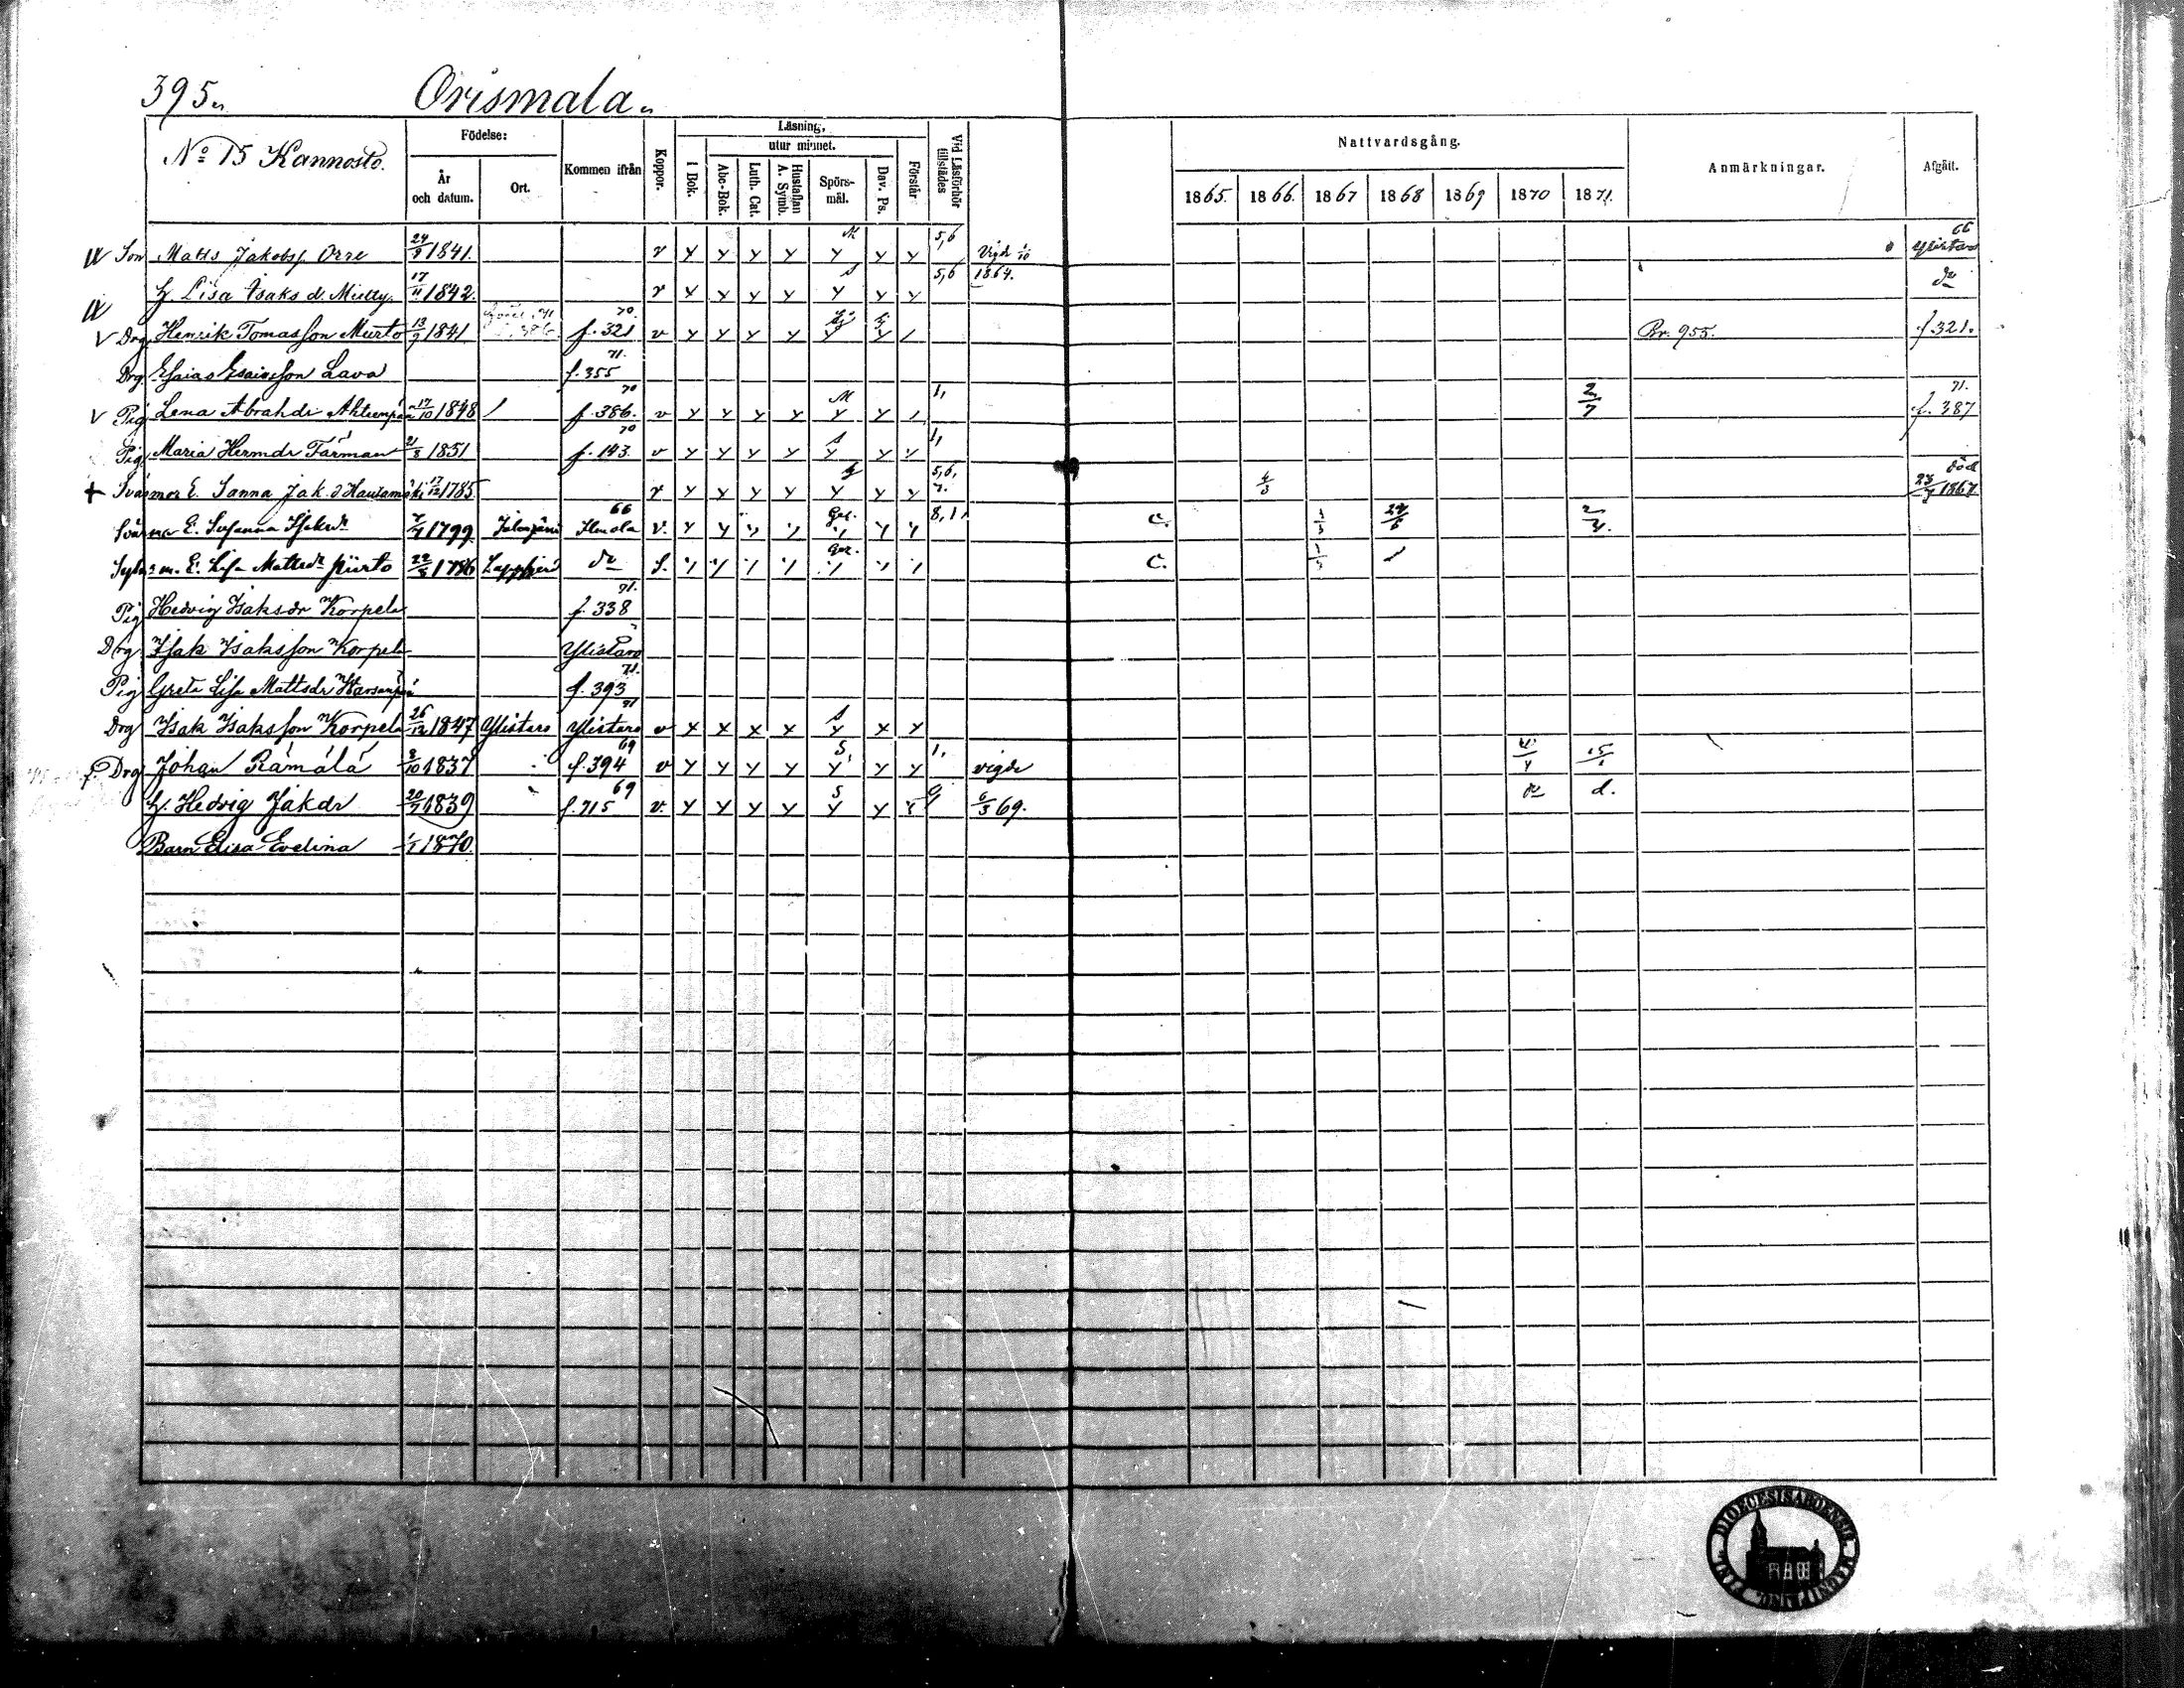 395.
Orismala.
No 15 Kannosto.
Födelse:
År och datum.
Ort.
Kommen ifrån
Koppor.
Läsning,
I Bok.
utur minnet.
Abc-Bok.
Luth. Cat.
Hustaflan A. Symb.
Spörs-mål.
Dav. Ps.
Förstår
Vid Läsförhör tillstädes
Nattvardsgång.
1865. 1866. 1867 1868 1869 1870 1871.
Anmärkningar.
Afgått.
Son Matts Jakobsf. Orre 24/9 1841. v y y y y M y y y 5,6 Vigd 1/10 66 Ylistaro
H. Lisa Isaks d. 17/11 1842. v y y y y s y y y 5,6 1864. do
V Drg Henrik Tomasson Murto 13/9 1841 70. f. 321 v y y y y y y Br. 955. f. 321.
Drg Esaias Esaiasson Lava 71. f. 355
V Pig Lena Abrahdr 17/10 1848 70 f. 386. v y y y y M y y 1, 2/7 71. f. 387
Pig Maria Hermdr Färman 21/8 1851 70 f. 143. v y y y y s y y y 1,
+ Svärmor E. Sanna Jak. d Hautamäki 17/12 1785 v y y y y y y y 5,6, 7. 4/3 död 23/7 1867
Svärmor E. Susanna 1799 66 Ilmola v. y y y y y y y 8,11 C. 1/3 24/6
E. Lisa Mattsdr Piirto 22/3 1786 Lappfjerd do C. 1/3
Pig Hedvig Isaksdr Korpela 71. f. 338
Drg Isak Isaksson Korpela Ylistaro
Pig Greta Lisa Mattsdr 71. f. 393
Drg Isak Isaksson Korpela 26/12 1847 Ylistaro 71 Ylistaro v x x x x s y x y
f. Drg Johan Rämälä 8/10 1837 69 f. 394 v y y y y S y y y 1, vigde
H. Hedvig Jakdr 20/7 1839 69 f. 715 v. y y y y S y y y 6/3 69. do d.
Barn Elisa Evelina 1/1 1870.
DIOECESIS ABOENSIS